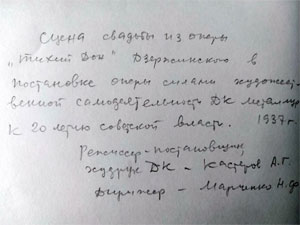 Сцена свадьбы из оперы
"Тихий Дон" Дзержинского в
постановке оперы силами художест-
венной самодеятельность ДК металлур
к 20 летию советской власть. 1937 г.
Режиссер-постановщик,
худрук ДК - Кастеров А.Г.
Дирижер - Марченко Н.Ф